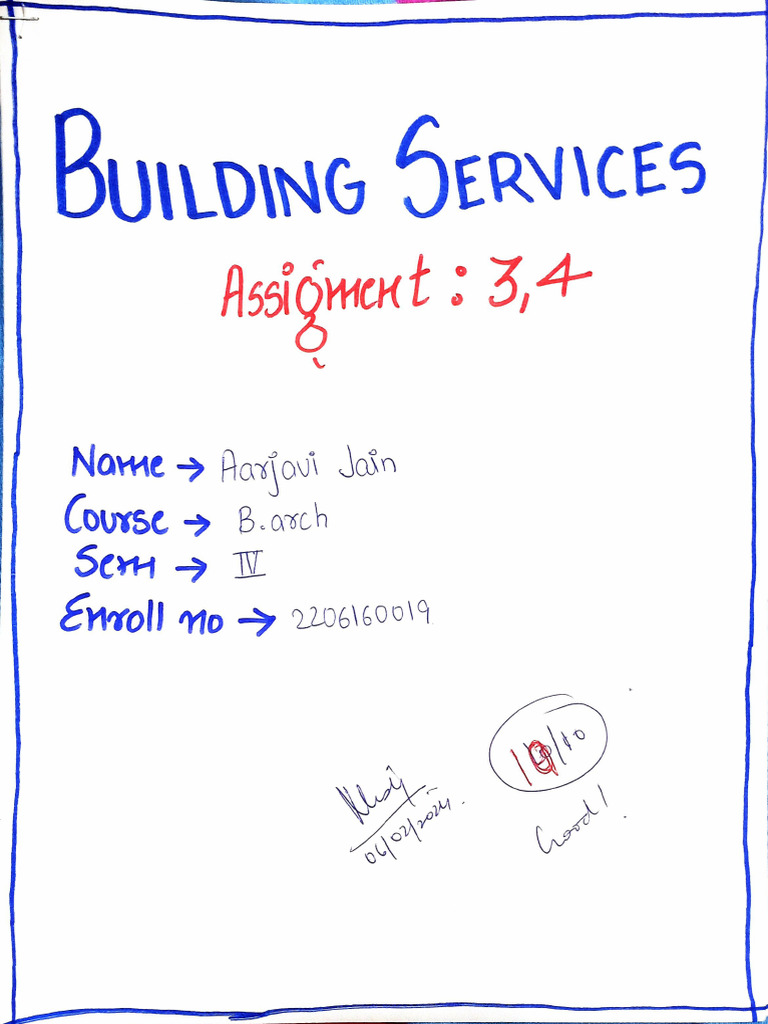 BUILDING SERVICES
Assigment : 3,4
Name → Aarjavi Jain
Course → B.arch
Sem → IV
Enroll no → 2206160019
10/10
06/02/2024.
Good!